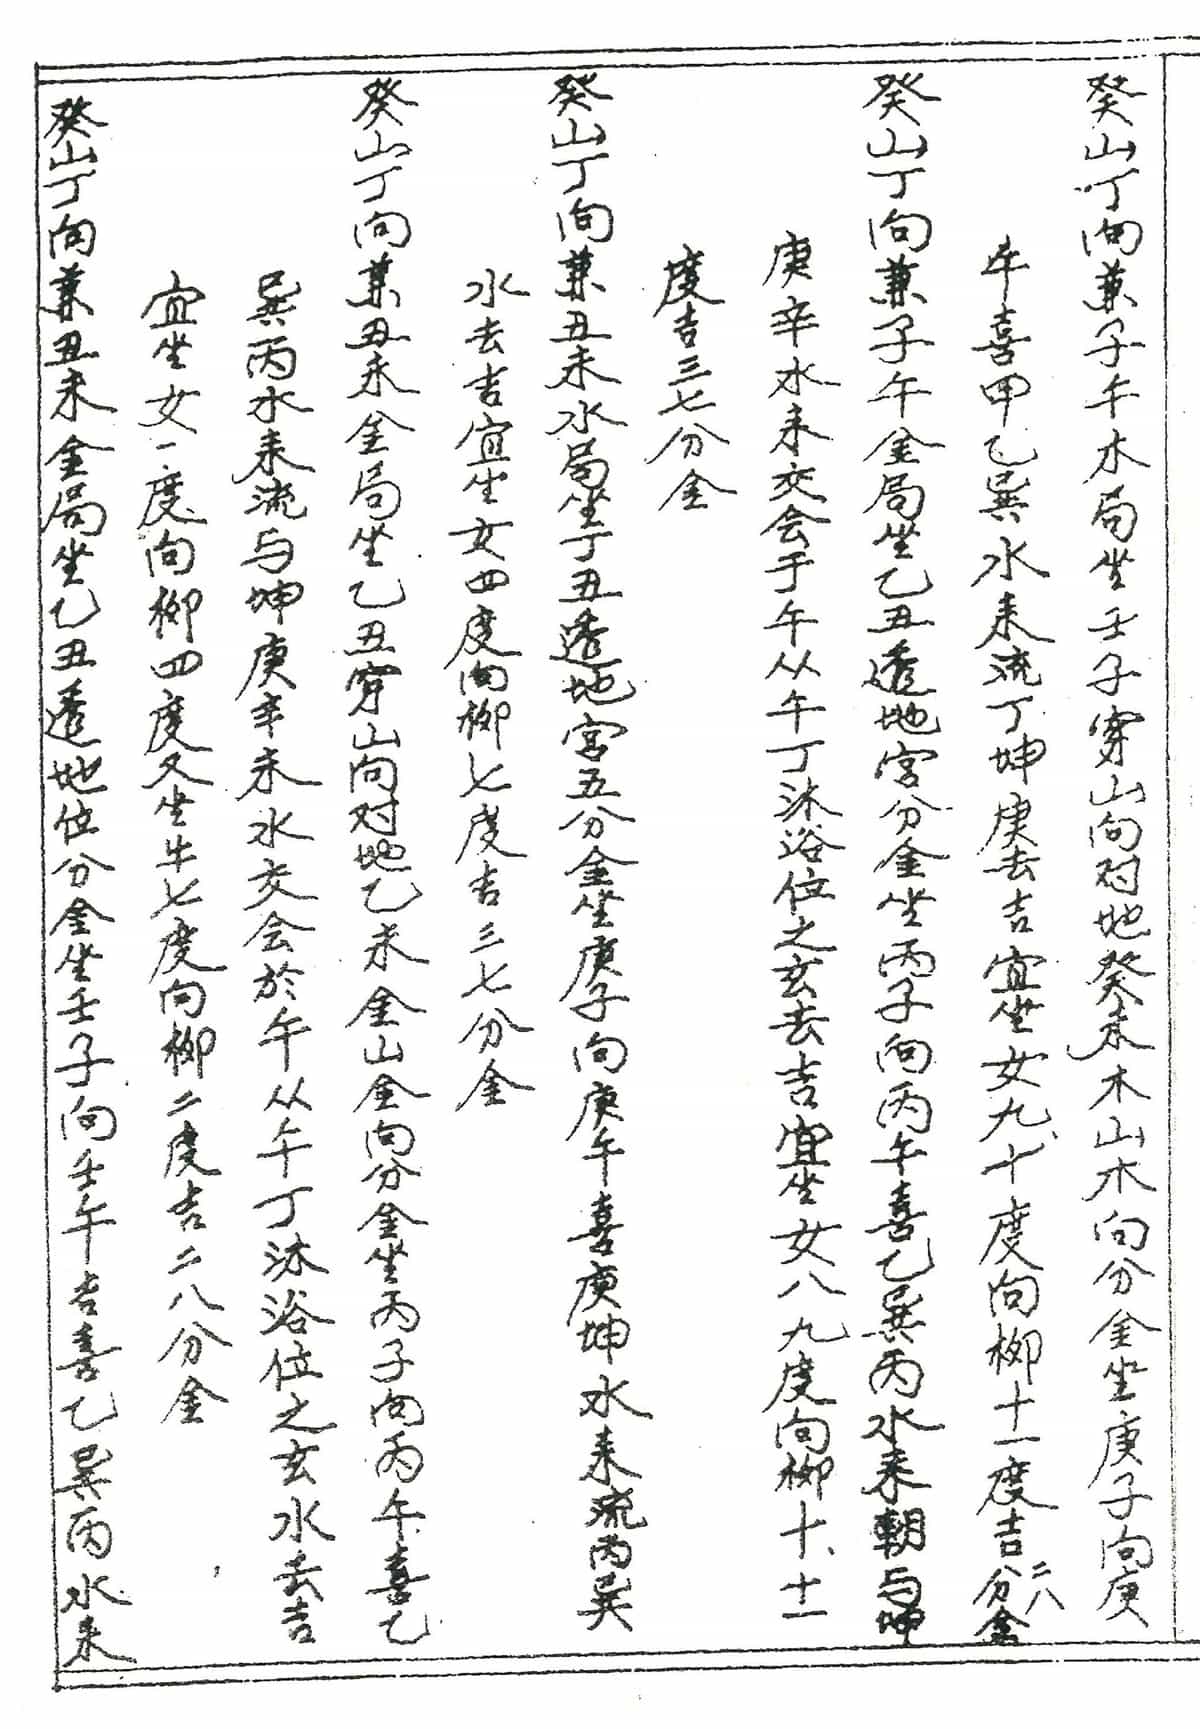 癸山丁向兼子午木局坐壬子穿山向对地癸未木山木向分金坐庚子向庚
午喜甲乙巽水来流丁坤庚去吉宜坐女九十度向柳十一度吉二八分金
癸山丁向兼子午金局坐乙丑透地宫分金坐丙子向丙午喜乙巽丙水来朝与坤
庚辛水来交会于午从午丁沐浴位之玄去吉宜坐女八九度向柳十、十一
度吉三七分金
癸山丁向兼丑未水局坐丁丑透地宫五分金坐庚子向庚午喜庚坤水来流丙巽
水去吉宜坐女四度向柳七度吉三七分金
癸山丁向兼丑未金局坐乙丑穿山向对地乙未金山金向分金坐丙子向丙午喜乙
巽丙水来流与坤庚辛未水交会於午从午丁沐浴位之玄水去吉
宜坐女一度向柳四度又坐牛七度向柳二度吉二八分金
癸山丁向兼丑未金局坐乙丑透地位分金坐壬子向壬午吉喜乙巽丙水来